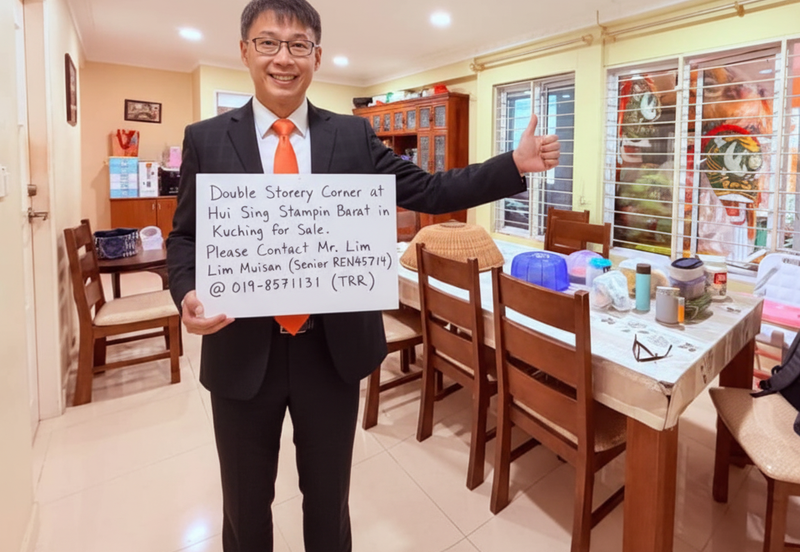 Double Storery Corner at
Hui Sing Stampin Barat in
Kuching for Sale.
Please Contact Mr. Lim
Lim Muisan (Senior REN45714)
@ 019-8571131 (TRR)